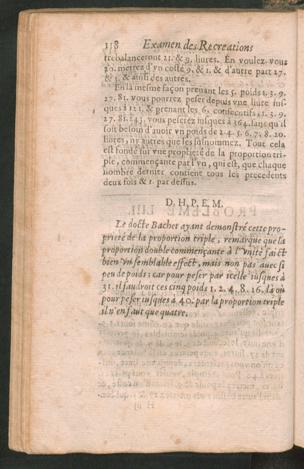 158 Examen des Recreations
trebalanceront 21. & 9. liures. En voulez vous
20. mettez d'vn costé 9. & 1. & d'autre part 27.
& 3. & ainsi des autres.
En la mesme façon prenant les 5. poids 1. 3. 9.
27. 81. vous pourrez peser depuis vne liure ius-
ques à 121, & prenant les 6. consecutifs 1. 3. 9.
27. 81. 243, vous peserez iusques à 364. sans qu'il
soit besoin d'auoir vn poids de 2. 4. 5. 6. 7. 8. 20.
liures, ny autres que les susnommez. Tout cela
est fondé sur vne proprieté de la proportion tri-
ple, commençante par l'vn, qui est, que chaque
nombre dernier contient tous les precedents
deux fois & 1. par dessus.
D. H. P. E. M.
Le docte Bachet ayant demonstré cette pro-
prieté de la proportion triple, remarque que la
proportion double commençante à l'vnité fait
bien vn semblable effect, mais non pas auec si
peu de poids: car pour peser par icelle iusques à
31. il faudroit ces cinq poids 1. 2. 4. 8. 16. là où
pour peser iusques à 40. par la proportion triple
il n'en faut que quatre.